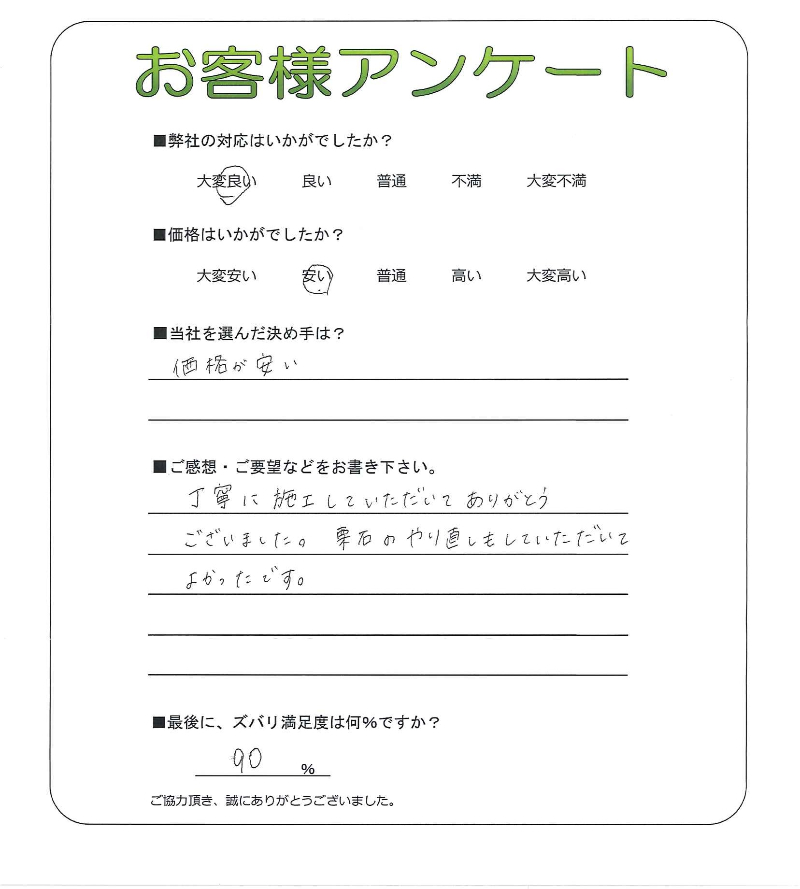 お客様アンケート
■弊社の対応はいかがでしたか？
大変良い 良い 普通 不満 大変不満
■価格はいかがでしたか？
大変安い 安い 普通 高い 大変高い
■当社を選んだ決め手は？
価格が安い
■ご感想・ご要望などをお書き下さい。
丁寧に施工していただいてありがとう
ございました。栗石のやり直しもしていただいて
よかったです。
■最後に、ズバリ満足度は何%ですか？
90 %
ご協力頂き、誠にありがとうございました。